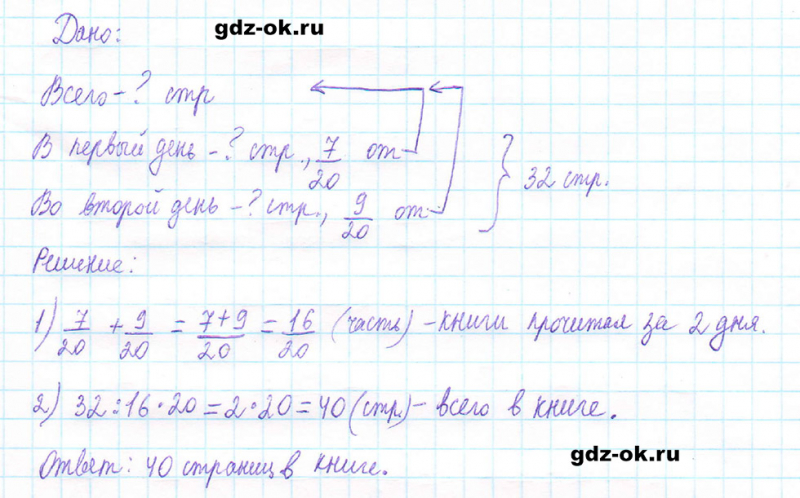 Дано:
gdz-ok.ru
Всего - ? стр
В первый день - ? стр., 7/20 от
Во второй день - ? стр., 9/20 от
} 32 стр.
Решение:
1) 7/20 + 9/20 = (7+9)/20 = 16/20 (часть) - книги прочитал за 2 дня.
2) 32:16·20=2·20=40(стр.)- всего в книге.
Ответ: 40 страниц в книге.
gdz-ok.ru